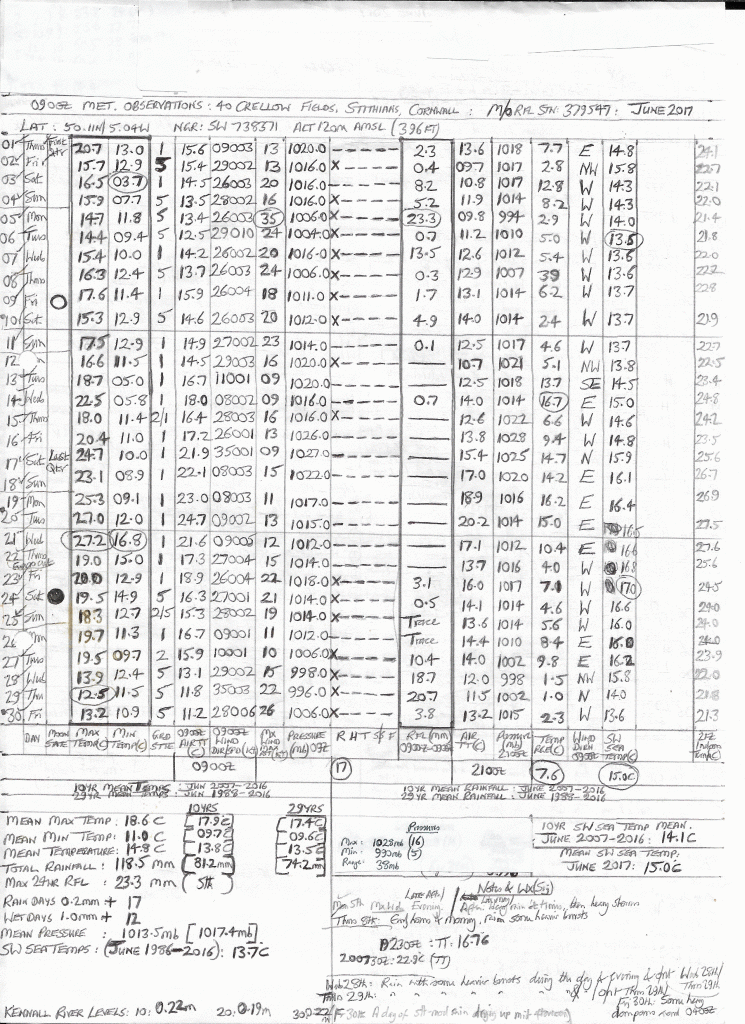 0900Z MET. OBSERVATIONS: 40 CRELLOW FIELDS, STITHIANS, CORNWALL: M/O RFL STN: 379547: JUNE 2017
LAT: 50.11N/5.04W NGR: SW 738371 ALT 120m AMSL (396FT)
01 Thurs First Qtr 20.7 13.0 1 15.6 09003 13 1020.0 ----- 2.3 13.6 1018 7.7 E 14.8 24.1
02 Fri 15.7 12.9 5 15.4 29002 13 1016.0 X----- 0.4 09.7 1017 2.8 NW 15.8
03 Sat 16.5 03.7 1 14.5 26003 20 1016.0 ----- 8.2 10.8 1017 12.8 W 14.3 22.1
04 Sun 15.9 07.7 5 13.5 28002 16 1016.0 X----- 5.2 11.9 1014 8.2 W 14.3 22.0
05 Mon 14.7 11.8 5 13.4 26003 35 1006.0 X----- 23.3 09.8 994 2.9 W 14.0 21.4
06 Tues 14.4 09.4 5 12.5 29010 24 1004.0 X----- 0.7 11.2 1010 5.0 W 13.5 21.8
07 Wed 15.4 10.0 1 14.2 26002 20 1016.0 X----- 13.5 12.6 1012 5.4 W 13.6 22.0
08 Thurs 16.3 12.4 5 13.7 26003 24 1006.0 X----- 0.3 12.9 1007 39 W 13.6 22.2
09 Fri 17.6 11.4 1 15.9 26004 18 1011.0 X----- 1.7 13.1 1014 6.2 W 13.7 22.8
10 Sat 15.3 12.9 5 14.6 26003 20 1012.0 X----- 4.9 14.0 1014 2.4 W 13.7 21.9
11 Sun 17.5 12.9 1 14.9 27002 23 1014.0 ----- 0.1 12.5 1017 4.6 W 13.7 22.7
12 16.6 11.5 1 14.5 29003 16 1020.0 X----- — 10.7 1021 5.1 NW 13.8 22.5
13 Tues 18.7 05.0 1 16.7 11001 09 1020.0 ----- — 12.5 1018 13.7 SE 14.5 23.4
14 Wed 22.5 05.8 1 18.0 08002 09 1016.0 ----- 0.7 14.0 1014 16.7 E 15.0 24.8
15 Thurs 18.0 11.4 2/1 16.4 28003 16 1016.0 X----- — 12.6 1022 6.6 W 14.6 24.2
16 Fri 20.4 11.0 1 17.2 26001 13 1026.0 ----- — 13.8 1028 9.4 W 14.8 23.5
17 Sat Last Qtr 24.7 10.0 1 21.9 35001 09 1027.0 ----- — 15.4 1025 14.7 N 15.9 25.6
18 Sun 23.1 08.9 1 22.1 08003 15 1022.0 ----- — 17.0 1020 14.2 E 16.1 26.7
19 Mon 25.3 09.1 1 23.0 08003 11 1017.0 ----- — 18.9 1016 16.2 E 16.4 26.9
20 Tues 27.0 12.0 1 24.7 09002 13 1015.0 ----- — 20.2 1014 15.0 E 27.5
21 Wed 27.2 16.8 1 21.6 09005 12 1012.0 ----- — 17.1 1012 10.4 E 16.6 27.6
22 Thurs 19.0 15.0 1 17.3 27004 15 1014.0 ----- — 13.7 1016 4.0 W 16.8 25.6
23 Fri 20.0 12.9 1 18.9 26004 22 1018.0 X----- 3.1 16.0 1017 7.1 W 170 24.5
24 Sat 19.5 14.9 5 16.3 27001 21 1014.0 X----- 0.5 14.1 1014 4.6 W 16.6 24.0
25 Sun 18.3 12.7 2/5 15.3 28002 19 1014.0 X----- Trace 13.6 1014 5.6 W 16.0 24.0
26 19.7 11.3 1 16.7 09001 11 1012.0 ----- Trace 14.4 1010 8.4 E 16.0 24.0
27 Tues 19.5 09.7 2 15.9 10001 10 1006.0 X----- 10.4 14.0 1002 9.8 E 16.2 23.9
28 Wed 13.9 12.4 5 13.1 29002 15 998.0 X----- 18.7 12.0 998 1.5 NW 15.8 22.0
29 Thu 12.5 11.5 5 11.8 35003 22 996.0 X----- 20.7 11.5 1002 1.0 N 14.0 21.8
30 Fri 13.2 10.9 5 11.2 28006 26 1006.0 X----- 3.8 13.2 1015 2.3 W 13.6 21.3
DAY MOON STATE MAX TEMP(C) MIN TEMP(C) GRD STTE 0900Z AIR TT(C) 0900Z WIND DIR/SPD(KT) MX WIND PRESSURE (Mb) 09Z R H T S F RFL (MM) 0900Z-0900Z AIR TT(C) PRESSURE (Mb) 2100Z TEMP WIND DIRN 0900Z SW SEA TEMP(C)
0900Z 17 2100Z 7.6 15.0C
10YR MEAN TEMPS: JUN 2007-2016
29YR MEAN TEMPS: JUN 1988-2016
10YR MEAN RAINFALL: JUNE 2007-2016
29YR MEAN RAINFALL: JUNE 1988-2016
10YRS 29YRS
MEAN MAX TEMP: 18.6 C [17.9C] [17.4C]
MEAN MIN TEMP: 11.0 C [09.7C] [09.6C]
MEAN TEMPERATURE: 14.8 C [13.8C] [13.5C]
TOTAL RAINFALL: 118.5 mm [81.2mm] [74.2mm]
MAX 24HR RFL: 23.3 mm (5th)
RAIN DAYS 0.2mm + 17
WET DAYS 1.0mm + 12
MEAN PRESSURE: 1013.5mb [1017.4mb]
SW SEA TEMPS: (JUNE 1986-2016): 13.7C
KENNALL RIVER LEVELS: 10: 0.22m 20: 0.19m 30:
Pressures
Max: 1028mb (16)
Min: 990mb (5)
Range: 38mb
10YR SW SEA TEMP MEAN.
JUNE 2007-2016: 14.1C
MEAN SW SEA TEMP.
JUNE 2017: 15.0C
Notes & Wx (Sig)
Mon 5th Evening
Thurs 8th: morning, rain some heavier bursts
2300Z: TT: 16.76
200730Z: 22.9C (TT)
Wed 28th: Rain with some heavier bursts during the day & evening & Wed 28th/Thurs 29th
Thurs 29th: " " " " Thurs 29th/
Fri 30th: Some heavy